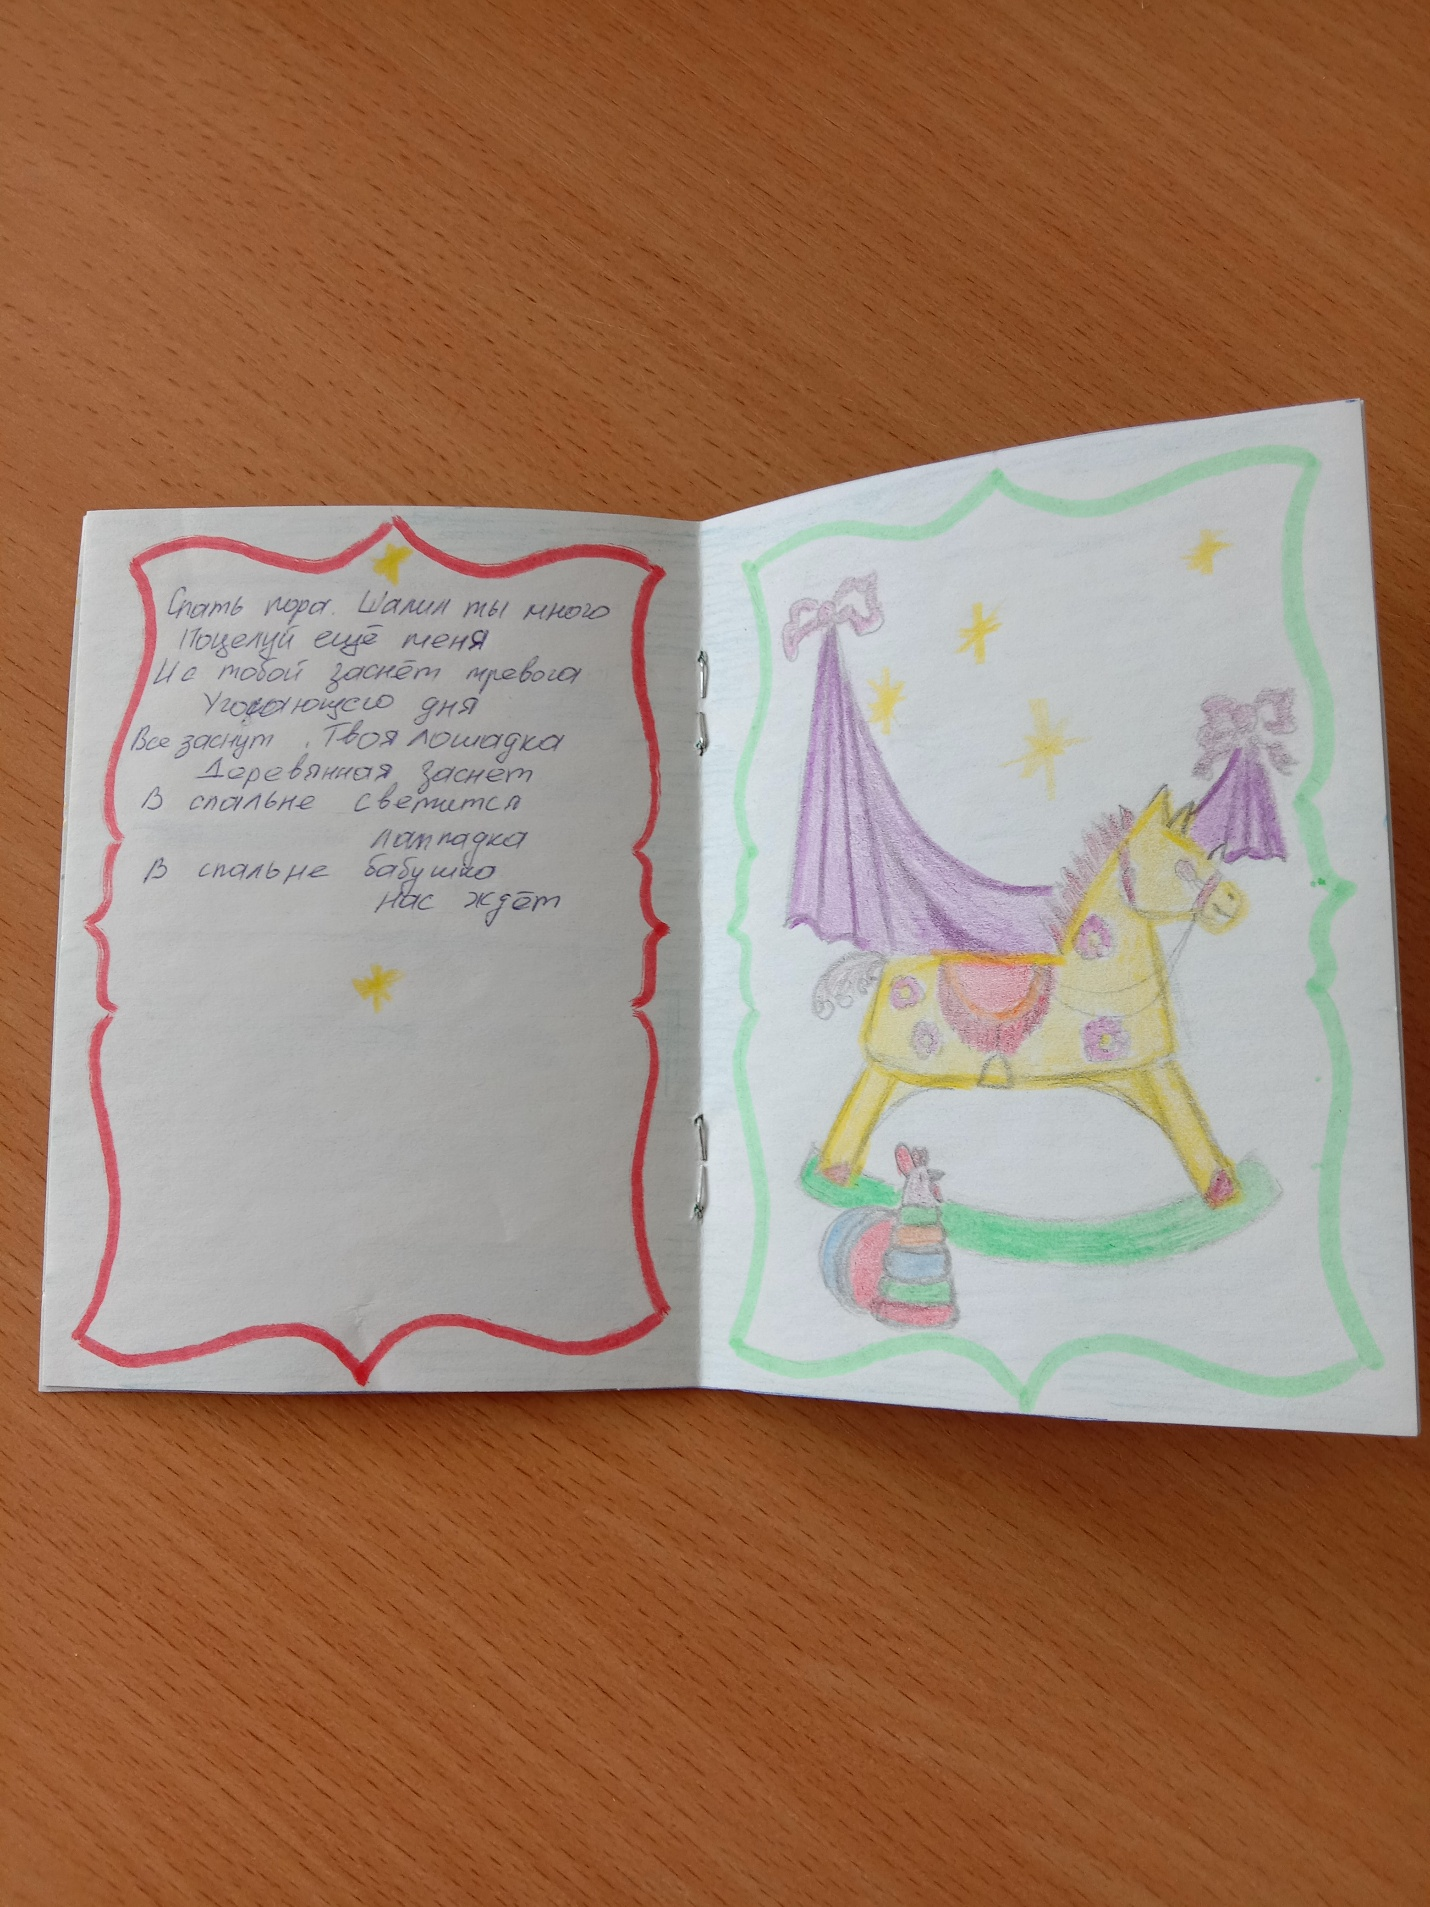 Спать пора. Шалил ты много
Поцелуй ещё меня
И с тобой заснёт тревога
Угасающего дня
Все заснут. Твоя лошадка
Деревянная заснёт
В спальне светится
лампадка
В спальне бабушка
нас ждёт